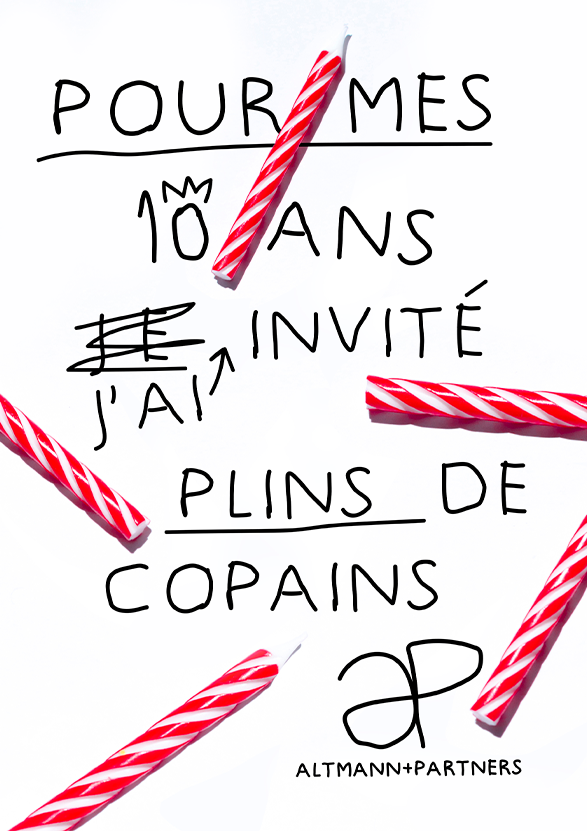 POUR MES
10 ANS
JE INVITÉ
J'AI
PLINS DE
COPAINS
aP
ALTMANN+PARTNERS